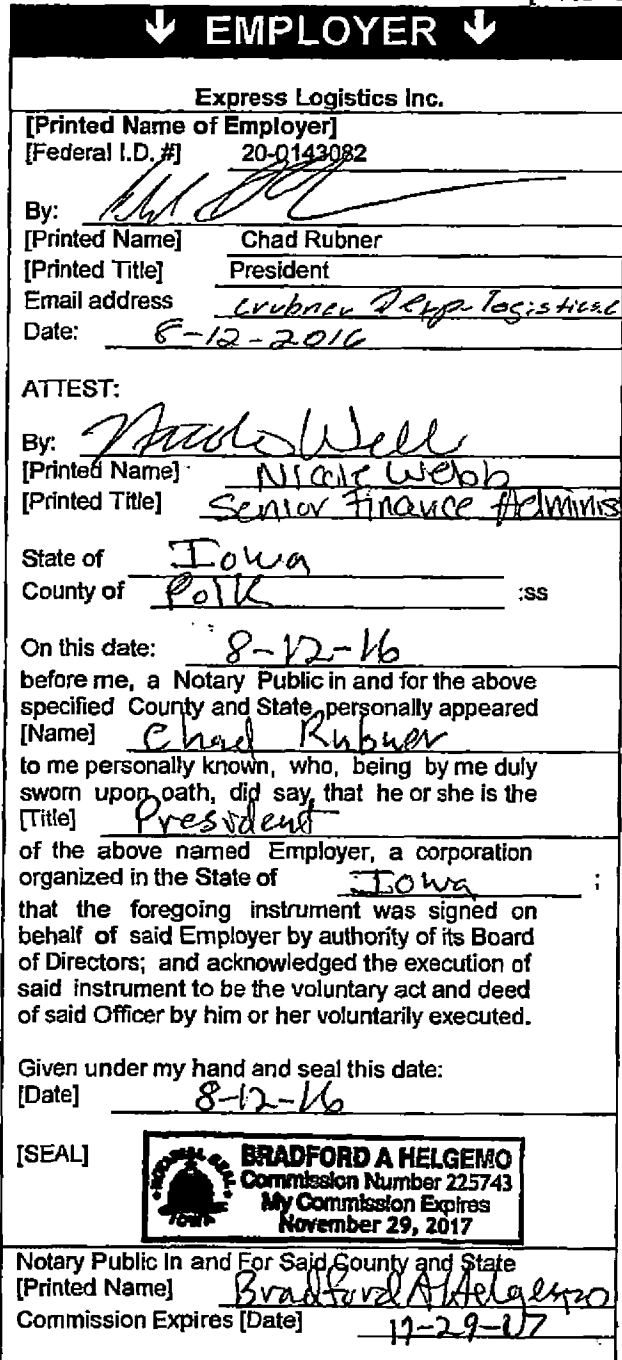 ↓ EMPLOYER ↓
Express Logistics Inc.
[Printed Name of Employer]
[Federal I.D. #] 20-0143082
By:
[Printed Name] Chad Rubner
[Printed Title] President
Email address
Date: 8-12-2016
ATTEST:
By:
[Printed Name] Nicole Webb
[Printed Title] Senior Finance Adminis
State of Iowa
County of Polk :ss
On this date: 8-12-16
before me, a Notary Public in and for the above
specified County and State, personally appeared
[Name] Chad Rubner
to me personally known, who, being by me duly
sworn upon oath, did say, that he or she is the
[Title] President
of the above named Employer, a corporation
organized in the State of Iowa ;
that the foregoing instrument was signed on
behalf of said Employer by authority of its Board
of Directors; and acknowledged the execution of
said instrument to be the voluntary act and deed
of said Officer by him or her voluntarily executed.
Given under my hand and seal this date:
[Date] 8-12-16
[SEAL]
NOTARIAL SEAL
IOWA
BRADFORD A HELGEMO
Commission Number 225743
My Commission Expires
November 29, 2017
Notary Public In and For Said County and State
[Printed Name] Bradford A Helgemo
Commission Expires [Date] 11-29-17